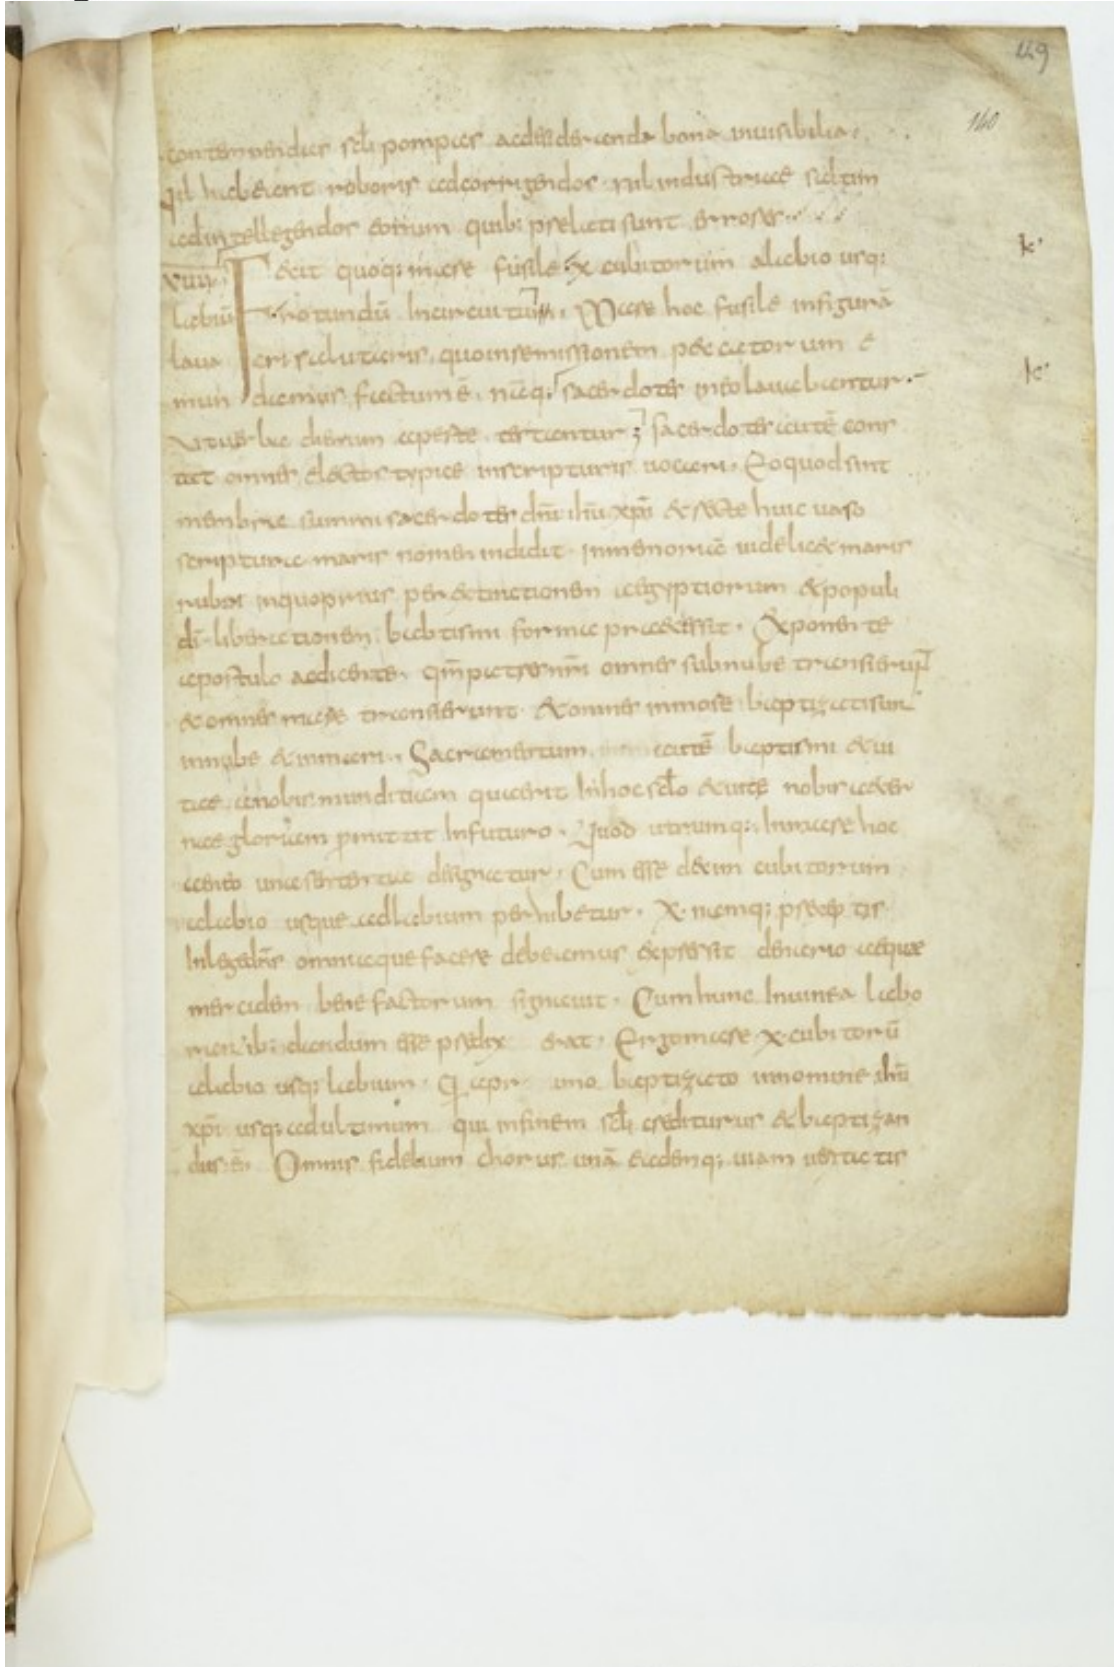 149
140
contemnendas scli pompas addesideranda bona inuisibilia.
Nil haberent roboris adcorrigendos nil industriae saltim
adintellegendos eorum quib; pselati sunt errores
VIIII Fecit quoq; mare fusile X cubitorum alabio usq;
k
labiū rotundū Incircuitu. Mare hoc fusile infigurā
laua cri salutaris quoinremissionem peccatorum e
k
mun damur factumē. nāq; sacerdotes ineo lauabantur.
Vtuerba dierum aperte testantur; sacerdotes autē cons
tat omnes electos typice inscripturis uocari. Eoquodsint
membra summi sacerdotes dnī ihū xpi & recte huic uaso
scriptura maris nomen indidit. Inmemoriā uidelic& maris
rubri inquoprius per extinctionem aegyptiorum & populi
dī liberationem babtismi forma praecessit. Exponente
apostolo acdicente. qm̄ patres nr̄i omnes subnube transierunt
& omnes mare transierunt & omnes inmose baptizati sunt
innube & inmari. Sacramentum autē baptismi & ui
tae anobis munditiam quaerit Inhoc sclo & uitę nobis aeter
nae gloriam promittit Infuturo. Quod utrumq; Inmare hoc
aeneo una sententia designatur. Cum esse decim cubitorum
alabio usque adlabium perhibetur. X. namq; p̄cep tis
Inlege dn̄s omnia que facere debeamus expressit denario aeque
mercedem bene factorum signauit. Cum hunc Inuinea labo
rantib; dandum esse p̄dix erat. Ergo mare X cubitorū
alabio usq; labium. Q apr uno baptizato innomine ihū
xpi usq; adultimum qui infinem scli crediturus & baptizan
dus ē. Omnis fidelium chorus unā eademq; uiam ueritatis